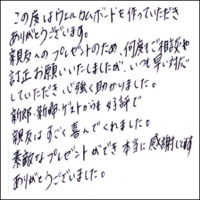 この度はウェルカムボードを作っていただき
ありがとうございます。
親友へのプレゼントのため、何度もご相談や
訂正お願いいたしましたが、いつも早い対応
していただき、心強く助かりました。
新郎・新婦・ゲストからも好評で
親友はすごく喜んでくれました。
素敵なプレゼントができ本当に感謝します
ありがとうございました。